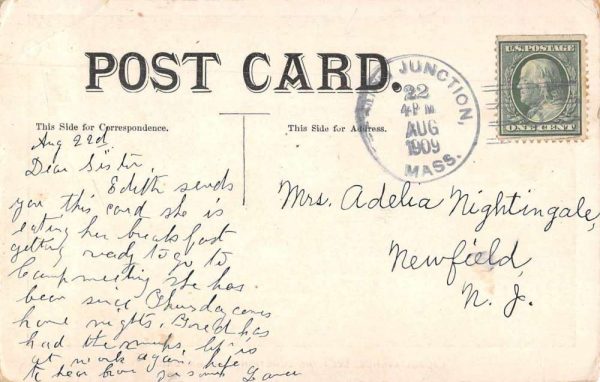 POST CARD.
This Side for Correspondence.
This Side for Address.
JUNCTION,
22
4 PM
AUG
1909
MASS.
U.S. POSTAGE
ONE CENT
Aug 22d.
Dear Sister,
Edith sends
you this card she is
eating her breakfast
getting ready to go to
Campmeeting she has
been since Thursday comes
home nights. has
had the mumps, is
at work again. hope
to hear from you soon
Mrs. Adelia Nightingale,
Newfield,
N. J.